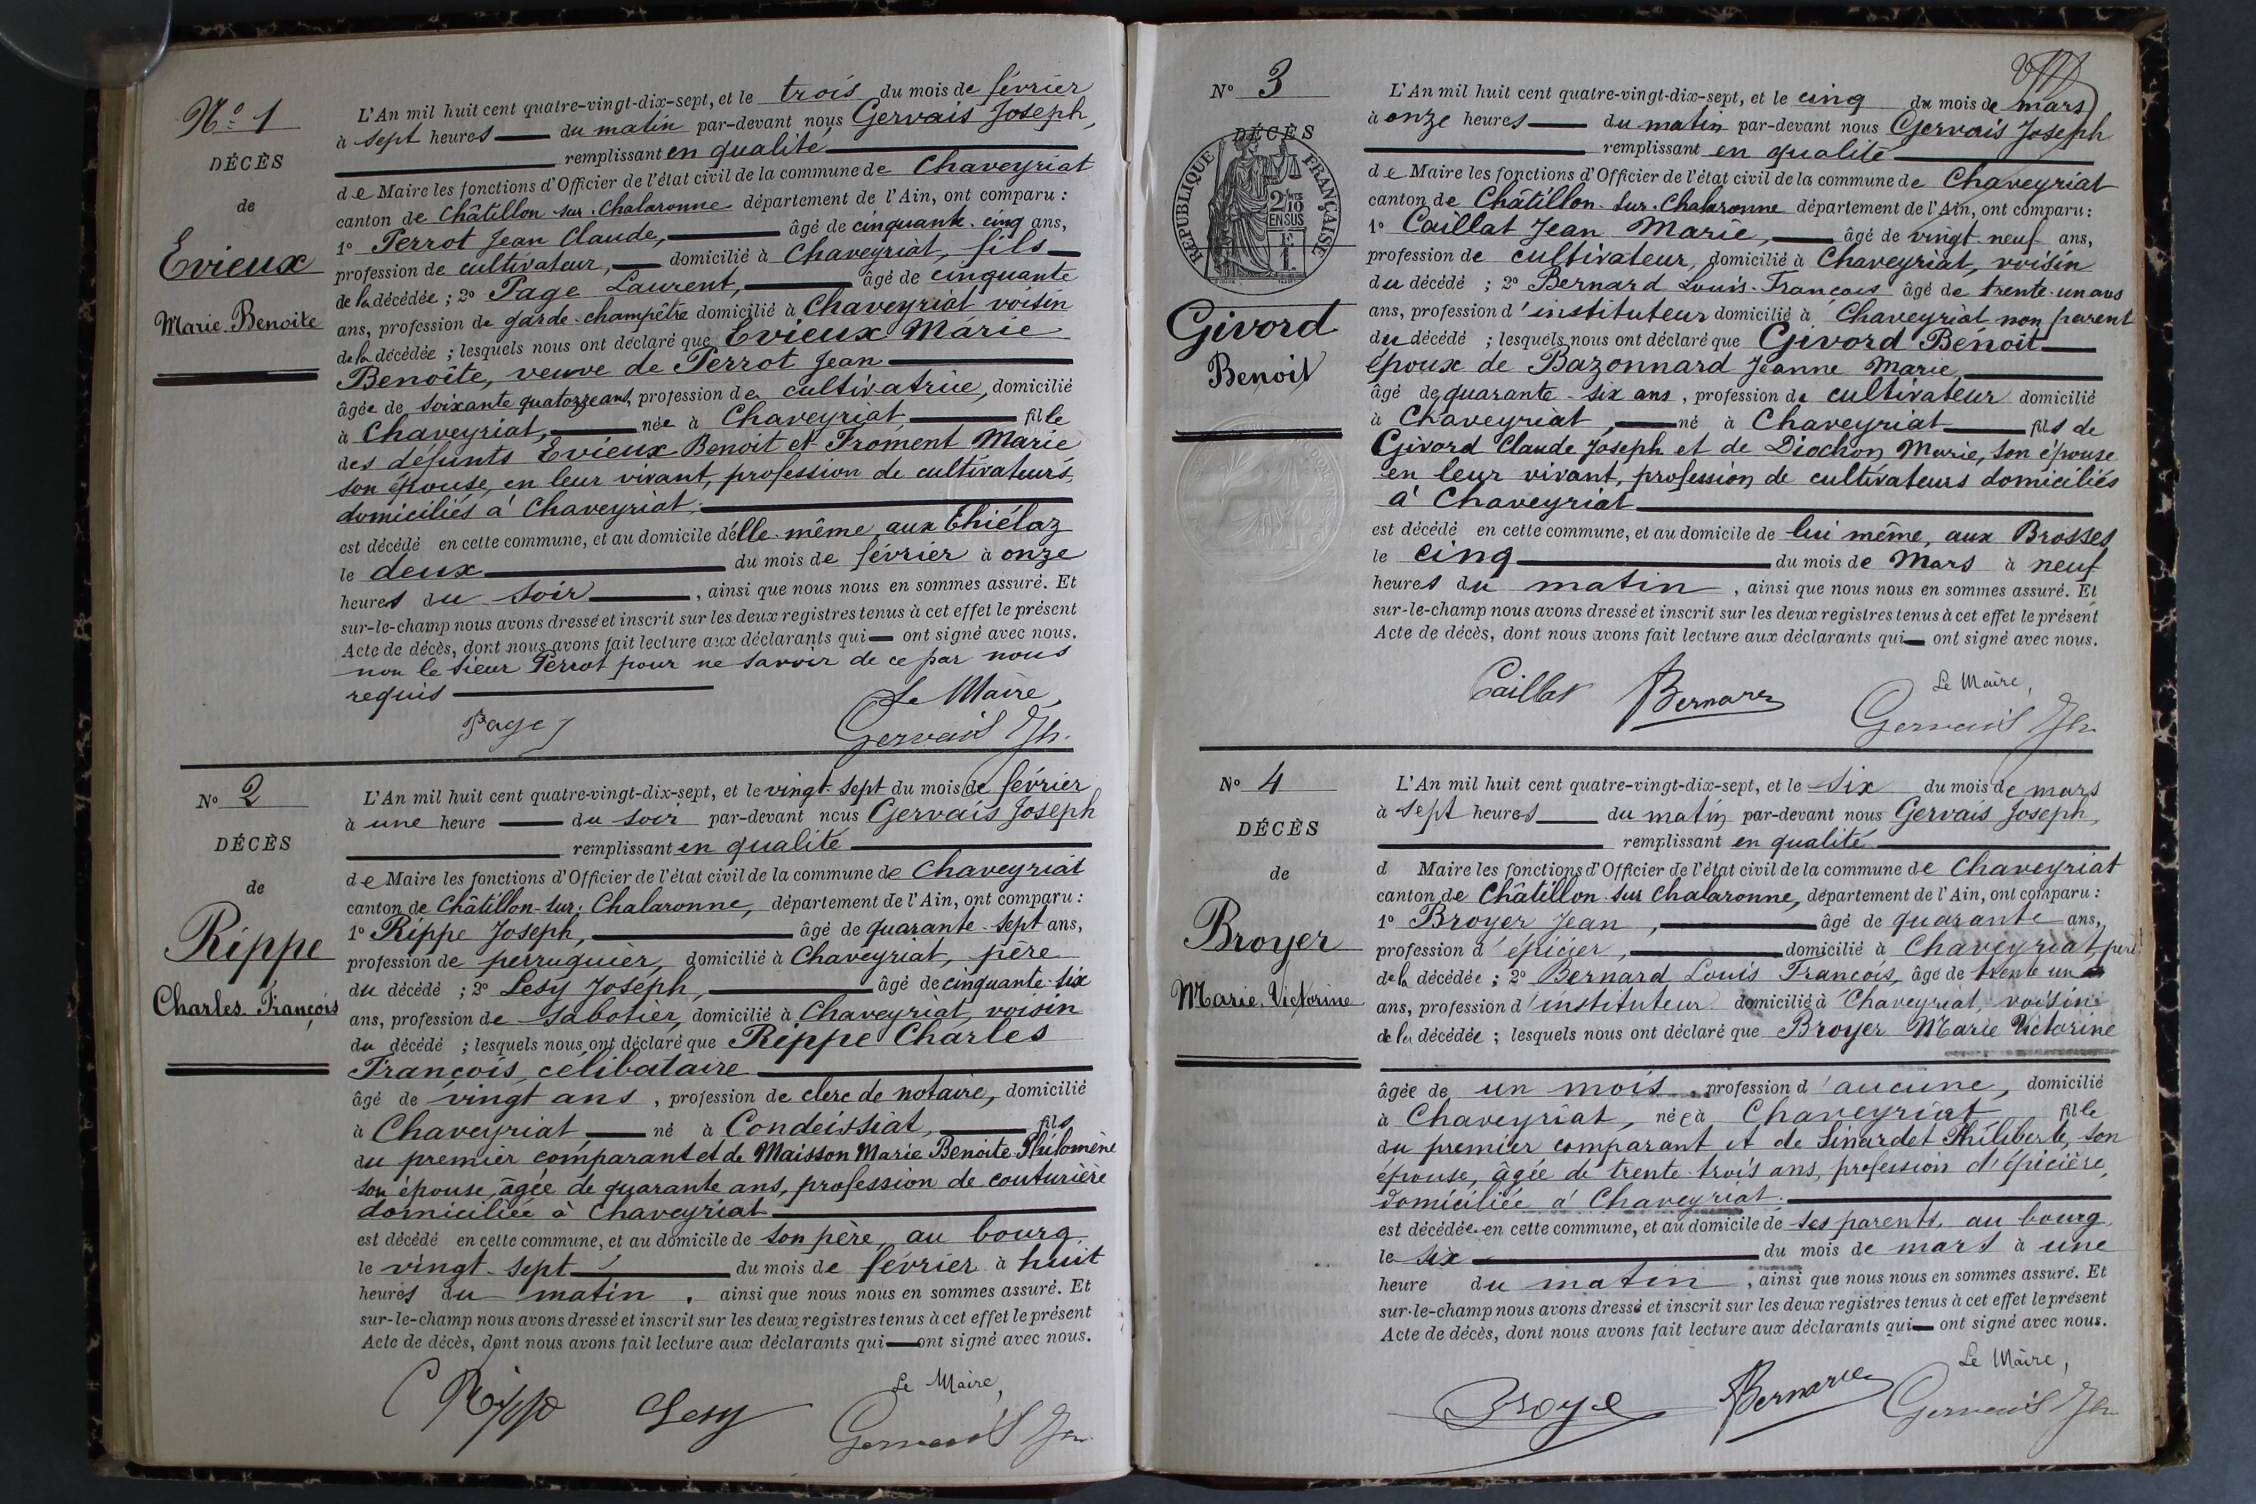 N° 1
DÉCÈS
de
Evieux
Marie-Benoite
L'An mil huit cent quatre-vingt-dix-sept, et le trois du mois de février
à sept heures du matin par-devant nous Gervais Joseph,
remplissant en qualité
de Maire les fonctions d'Officier de l'état civil de la commune de Chaveyriat
canton de Châtillon sur Chalaronne département de l'Ain, ont comparu :
1° Perrot Jean Claude, âgé de cinquante-cinq ans,
profession de cultivateur, domicilié à Chaveyriat, fils
de la décédée ; 2° Page Laurent, âgé de cinquante
ans, profession de garde-champêtre domicilié à Chaveyriat voisin
de la décédée ; lesquels nous ont déclaré que Evieux Marie
Benoîte, veuve de Perrot Jean
âgée de soixante quatorze ans, profession de cultivatrice, domicilié
à Chaveyriat, née à Chaveyriat, fille
des défunts Evieux Benoit et Froment Marie
son épouse, en leur vivant, profession de cultivateurs,
domiciliés à Chaveyriat.
est décédé en cette commune, et au domicile d'elle-même, aux Thiélaz
le deux du mois de février à onze
heures du soir, ainsi que nous nous en sommes assuré. Et
sur-le-champ nous avons dressé et inscrit sur les deux registres tenus à cet effet le présent
Acte de décès, dont nous avons fait lecture aux déclarants qui ont signé avec nous.
non le sieur Perrot pour ne savoir de ce par nous
requis
Le Maire,
Page
Gervais Jh.
N° 2
DÉCÈS
de
Rippe
Charles-François
L'An mil huit cent quatre-vingt-dix-sept, et le vingt-sept du mois de février
à une heure du soir par-devant nous Gervais Joseph
remplissant en qualité
de Maire les fonctions d'Officier de l'état civil de la commune de Chaveyriat
canton de Châtillon-sur-Chalaronne, département de l'Ain, ont comparu :
1° Rippe Joseph, âgé de quarante-sept ans,
profession de perruquier, domicilié à Chaveyriat, père
du décédé ; 2° Lesy Joseph, âgé de cinquante-six
ans, profession de sabotier, domicilié à Chaveyriat, voisin
du décédé ; lesquels nous ont déclaré que Rippe Charles
François, célibataire
âgé de vingt ans, profession de clerc de notaire, domicilié
à Chaveyriat né à Condeissiat, fils
du premier comparant et de Maisson Marie Benoite Philomène
son épouse, âgée de quarante ans, profession de couturière
domiciliée à Chaveyriat
est décédé en cette commune, et au domicile de son père, au bourg,
le vingt-sept du mois de février à huit
heures du matin, ainsi que nous nous en sommes assuré. Et
sur-le-champ nous avons dressé et inscrit sur les deux registres tenus à cet effet le présent
Acte de décès, dont nous avons fait lecture aux déclarants qui ont signé avec nous.
Le Maire,
Rippe Lesy Gervais Jh
N° 3
DÉCÈS
RÉPUBLIQUE FRANÇAISE
2/10 EN SUS
Givord
Benoit
L'An mil huit cent quatre-vingt-dix-sept, et le cinq du mois de mars
à onze heures du matin par-devant nous Gervais Joseph
remplissant en qualité
de Maire les fonctions d'Officier de l'état civil de la commune de Chaveyriat
canton de Châtillon-sur-Chalaronne département de l'Ain, ont comparu :
1° Caillat Jean Marie, âgé de vingt-neuf ans,
profession de cultivateur, domicilié à Chaveyriat, voisin
du décédé ; 2° Bernard Louis-François âgé de trente-un ans
ans, profession d'instituteur domicilié à Chaveyriat non parent
du décédé ; lesquels nous ont déclaré que Givord Benoit
époux de Bazonnard Jeanne Marie,
âgé de quarante-six ans, profession de cultivateur domicilié
à Chaveyriat, né à Chaveyriat fils de
Givord Claude Joseph et de Diochon Marie, son épouse
en leur vivant, profession de cultivateurs domiciliés
à Chaveyriat
est décédé en cette commune, et au domicile de lui même, aux Brosses
le cinq du mois de Mars à neuf
heures du matin, ainsi que nous nous en sommes assuré. Et
sur-le-champ nous avons dressé et inscrit sur les deux registres tenus à cet effet le présent
Acte de décès, dont nous avons fait lecture aux déclarants qui ont signé avec nous.
Le Maire,
Caillat Bernard Gervais Jh
N° 4
DÉCÈS
de
Broyer
Marie-Victorine
L'An mil huit cent quatre-vingt-dix-sept, et le six du mois de mars
à sept heures du matin par-devant nous Gervais Joseph,
remplissant en qualité
d Maire les fonctions d'Officier de l'état civil de la commune de Chaveyriat
canton de Châtillon-sur Chalaronne, département de l'Ain, ont comparu :
1° Broyer Jean, âgé de quarante ans,
profession d'épicier, domicilié à Chaveyriat, père
de la décédée ; 2° Bernard Louis François, âgé de trente un
ans, profession d'instituteur domicilié à Chaveyriat, voisin
de la décédée ; lesquels nous ont déclaré que Broyer Marie Victorine
âgée de un mois, profession d'aucune, domicilié
à Chaveyriat, née à Chaveyriat fille
du premier comparant et de Sinardet Philiberte, son
épouse, âgée de trente-trois ans, profession d'épicière,
domiciliée à Chaveyriat.
est décédée en cette commune, et au domicile de ses parents, au bourg,
le six du mois de mars à une
heure du matin, ainsi que nous nous en sommes assuré. Et
sur-le-champ nous avons dressé et inscrit sur les deux registres tenus à cet effet le présent
Acte de décès, dont nous avons fait lecture aux déclarants qui ont signé avec nous.
Le Maire,
Broye Bernard Gervais Jh